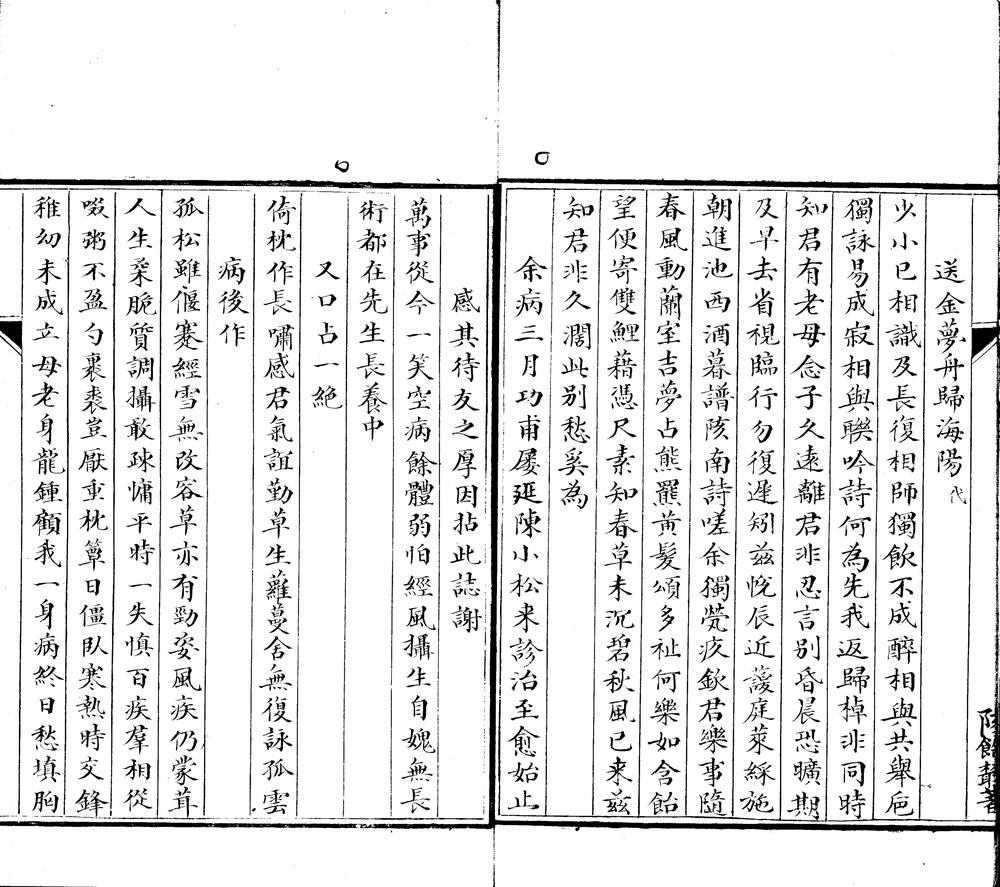 送金夢舟歸海陽代
少小已相識及長復相師獨飲不成醉相與共舉卮
獨詠易成寂相與聯吟詩何為先我返歸棹非同時
知君有老母念子久遠離君非忍言別昏晨恐曠期
及早去省視臨行勿復遲矧茲悅辰近護庭萊綵施
朝進池西酒暮譜陔南詩嗟余獨煢疚欽君樂事隨
春風動蘭室吉夢占熊羆黃髮頌多祉何樂如含飴
望便寄雙鯉藉憑尺素知春草未沉碧秋風已来茲
知君非久濶此別愁奚為
余病三月功甫屡延陳小松来診治至愈始止
感其待友之厚因拈此誌謝
萬事從今一笑空病餘體弱怕經風攝生自媿無長
術都在先生長養中
又口占一絕
倚枕作長嘯感君氣誼勤草生蘿蔓舍無復詠孤雲
病後作
孤松雖偃蹇經雪無改容草亦有勁姿風疾仍蒙茸
人生桑脆質調攝敢疎慵平時一失慎百疾羣相從
啜粥不盈勺裹裘豈厭重枕簟日僵臥寒熱時交鋒
稚幼未成立母老身龍鍾顧我一身病終日愁填胸